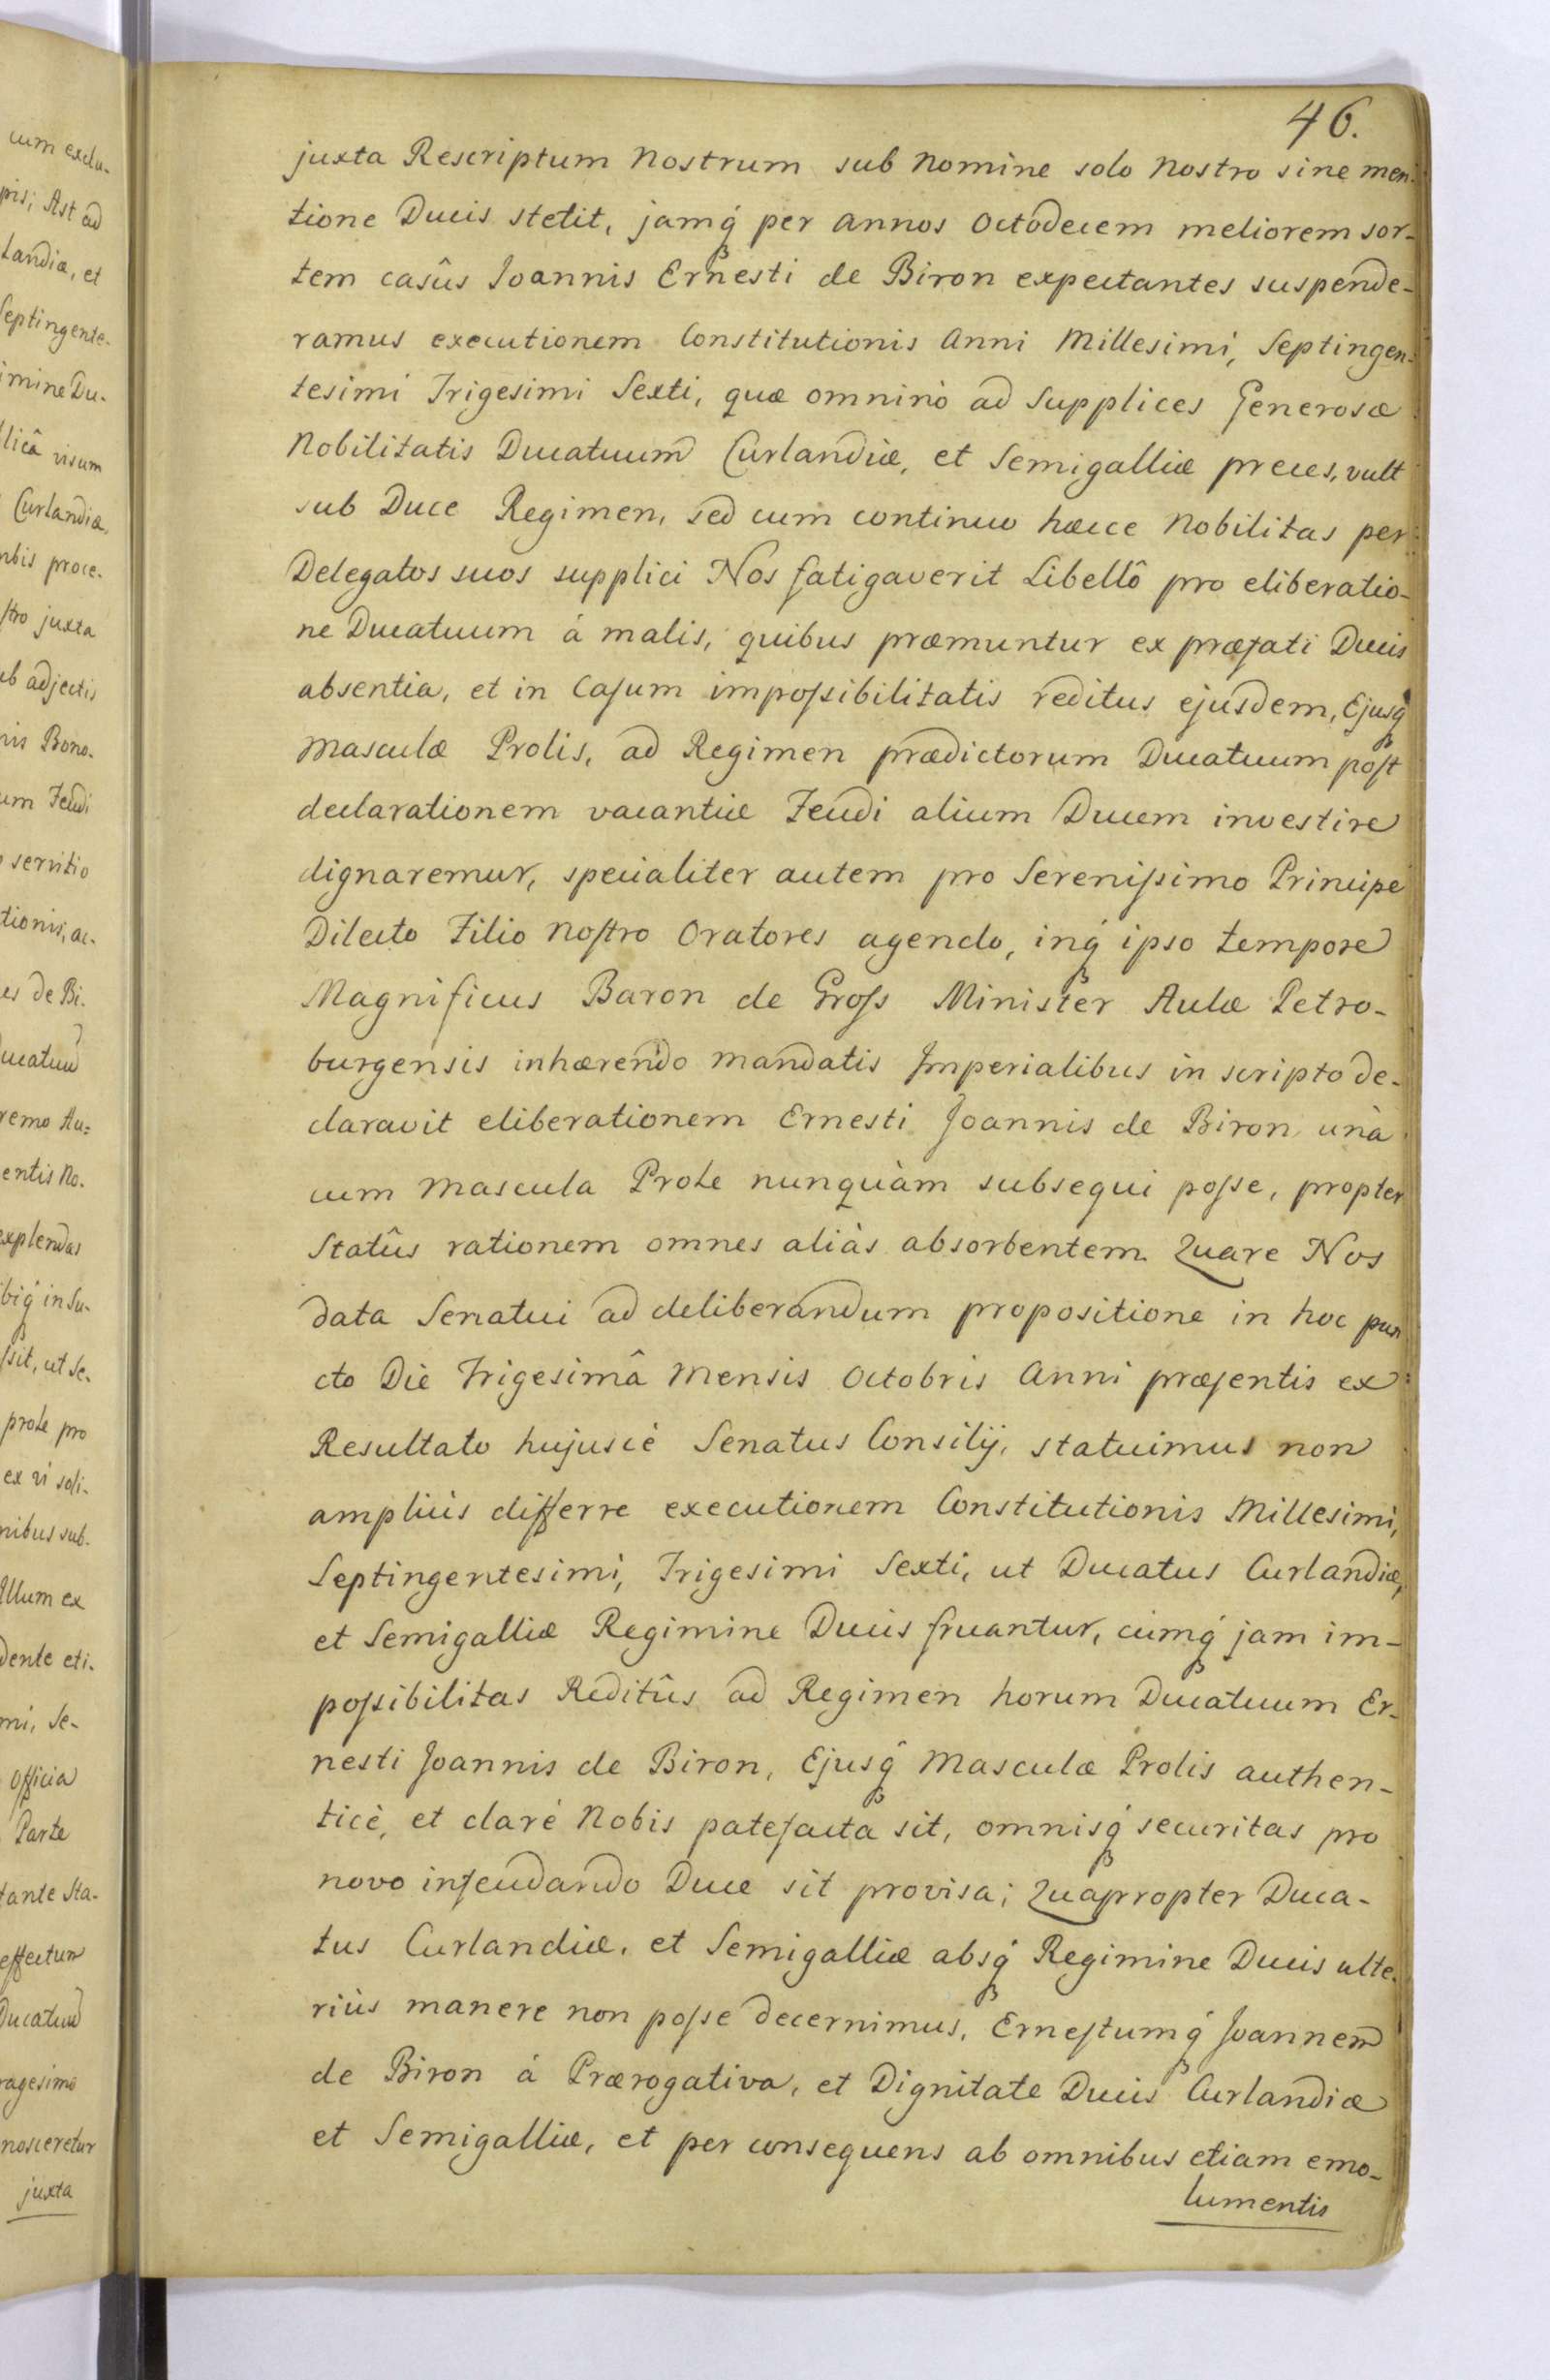 46.
juxta Rescriptum Nostrum sub Nomine solo Nostro sine men-
tione Ducis stetit, jamq́ per annos octodecem meliorem sor-
tem casûs Joannis Ernesti de Biron expectantes suspende-
ramus executionem Constitutionis Anni Millesimi, Septingen-
tesimi Trigesimi Sexti, quæ omninò ad Supplices Generosæ
Nobilitatis Ducatuum Curlandiæ, et Semigalliæ preces, vult
sub Duce Regimen, sed cum continuo hæcce Nobilitas per
Delegatos suos supplici Nos fatigaverit Libellô pro eliberatio-
ne Ducatuum á malis, quibus præmuntur ex præfati Ducis
absentia, et in Casum impossibilitatis reditus ejusdem, Ejusq́
Masculæ Prolis, ad Regimen prædictorum Ducatuum post
declarationem vacantiæ Feudi alium Ducem investire
dignaremur, specialiter autem pro Serenissimo Principe
Dilecto Filio Nostro Oratores agendo, inq́ ipso tempore
Magnificus Baron de Gross Minister Aulæ Petro-
burgensis inhærendo mandatis Imperialibus in scripto de-
claravit eliberationem Ernesti Joannis de Biron unà
cum Mascula Prole nunquàm subsequi posse, propter
Statûs rationem omnes aliàs absorbentem. Quare Nos
data Senatui ad deliberandum propositione in hoc pun
cto Die Trigesimâ Mensis Octobris Anni præsentis ex
Resultato hujuscè Senatus Consilij, statuimus non
ampliùs differre executionem Constitutionis Millesimi,
Septingentesimi, Trigesimi Sexti, ut Ducatus Curlandiæ,
et Semigalliæ Regimine Ducis fruantur, cùmq́ jam im-
possibilitas Reditûs ad Regimen horum Ducatuum Er-
nesti Joannis de Biron, Ejusq́ Masculæ Prolis authen-
ticè, et clarè Nobis patefacta sit, omnisq́ securitas pro
novo infeudando Duce sit provisa; Quapropter Duca-
tus Curlandiæ, et Semigalliæ absq́ Regimine Ducis ulte-
riùs manere non posse decernimus, Ernestumq́ Joannem
de Biron á Prærogativa, et Dignitate Ducis Curlandiæ
et Semigalliæ, et per consequens ab omnibus etiam emo-
lumentis
cum exclu-
pis; Ast ad
landiæ, et
Septingente-
imine Du-
licâ visum
Curlandiæ,
nbis proce-
stro juxta
ub adjectis
nis Bono-
um Feudi
servitio
tionis, ac-
es de Bi-
ucatuum
remo Au-
entis No-
explendas
biq́ in Su-
sit, ut Se-
prole pro
ex vi soli-
nibus sub-
Illum ex
dente eti-
mi, Se-
Officia
Parte
tante Sta-
effectum
Ducatuum
ragesimo
nosceretur
juxta